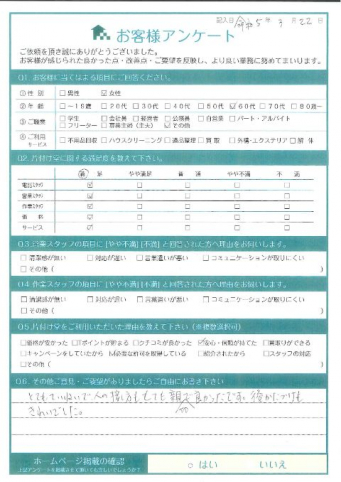 記入日 令和5年 3月 22日
お客様アンケート
ご依頼を頂き誠にありがとうございました。
お客様が感じられた良かった点・改善点・ご要望を反映し、より良い業務に努めてまいります。
Q1. お客様に当てはまる項目にご回答ください。
①性別 □男性 ☑女性
②年齢 □~19歳 □20代 □30代 □40代 □50代 ☑60代 □70代 □80歳~
③ご職業 □学生 □会社員 □経営者 □公務員 □自営業 □パート・アルバイト
□フリーター □専業主婦(主夫) ☑その他
④ご利用サービス □不用品回収 □ハウスクリーニング □遺品整理 □買取 □外構・エクステリア □解体
Q2. 片付け堂に関する満足度を教えて下さい。
満足 やや満足 普通 やや不満 不満
電話スタッフ ☑ □ □ □ □
営業スタッフ ☑ □ □ □ □
作業スタッフ ☑ □ □ □ □
価格 ☑ □ □ □ □
サービス ☑ □ □ □ □
Q3. 営業スタッフの項目に[やや不満][不満]と回答された方へ理由をお伺いします。
□清潔感が無い □対応が遅い □言葉遣いが悪い □コミュニケーションが取りにくい
□その他( )
Q4. 作業スタッフの項目に[やや不満][不満]と回答された方へ理由をお伺いします。
□清潔感が無い □対応が遅い □言葉遣いが悪い □コミュニケーションが取りにくい
□その他( )
Q5. 片付け堂をご利用いただいた理由を教えて下さい(※複数選択可)
□価格が安かった □ポイントが貯まる □クチコミが良かった ☑安心・信頼が持てた □買取りができる
□キャンペーンをしていたから ☑必要な許可を取得している □紹介されたから □スタッフの対応
□その他( )
Q6. その他ご意見・ご要望がありましたらご自由にお書き下さい
とてもていねいで人の接し方もとても親切で良かったです。後かたづけも
きれいでした。
ホームページ掲載の確認
○はい いいえ